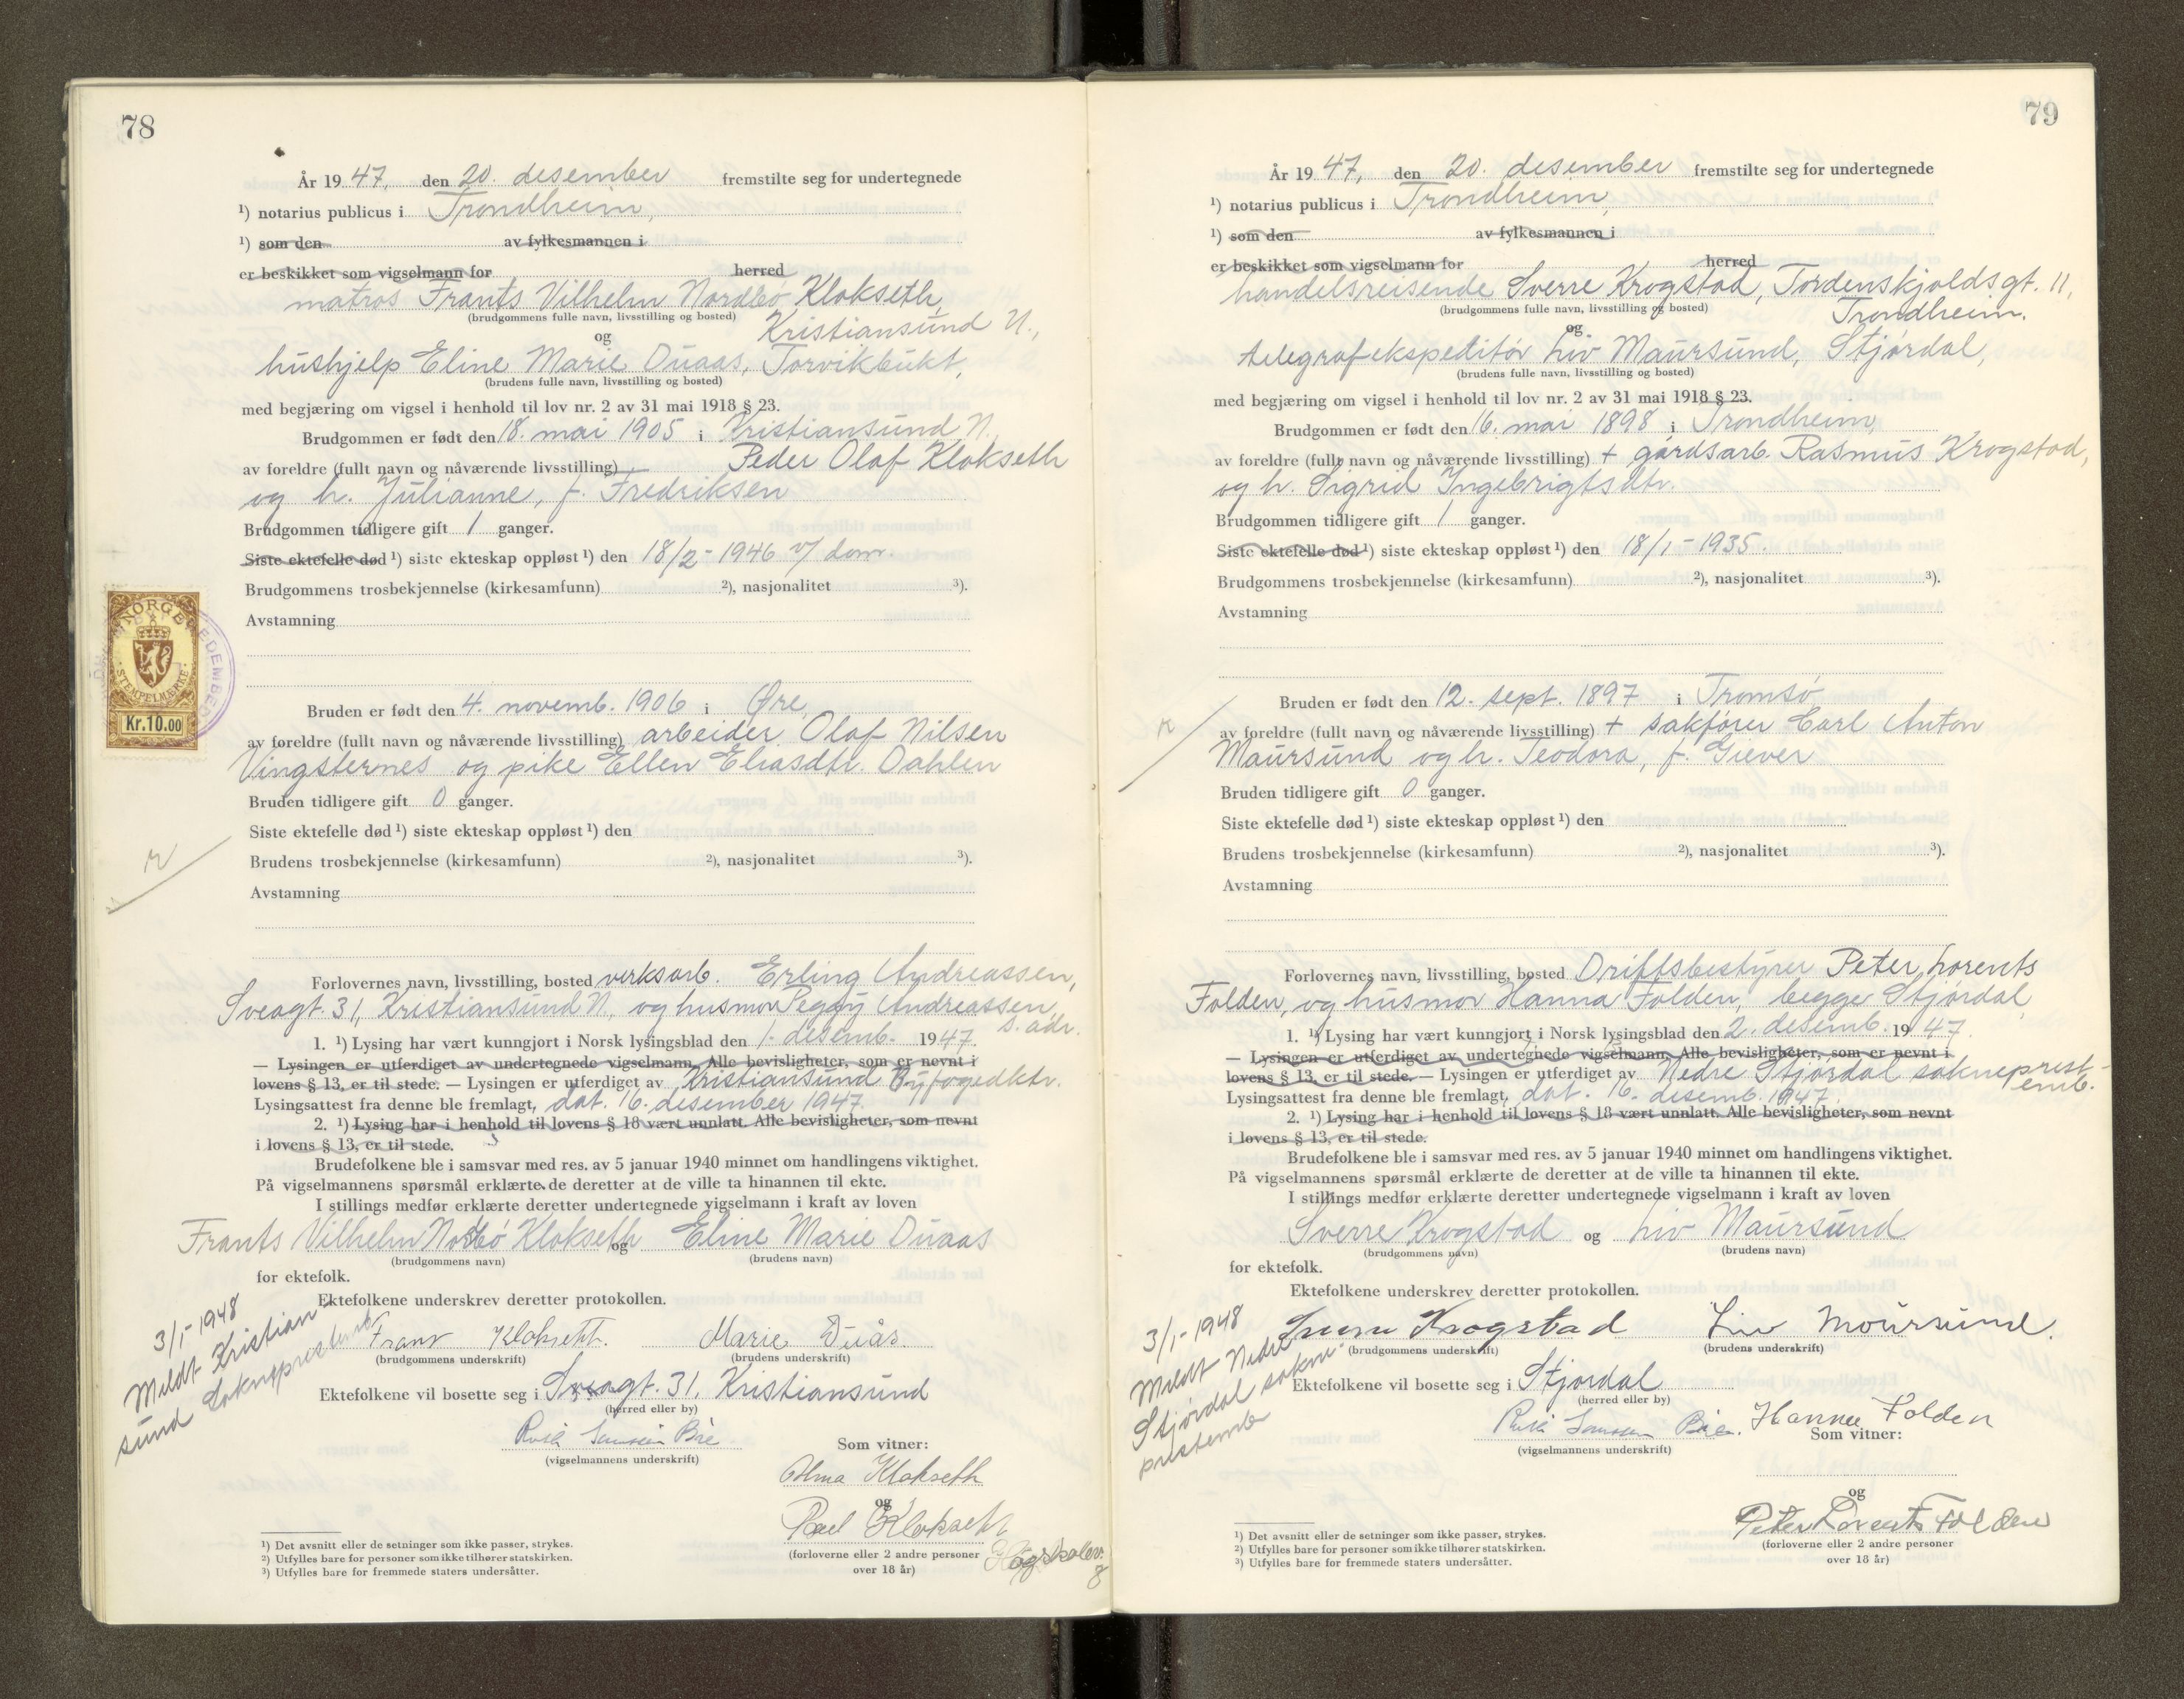 78
År 19 47, den 20. desember fremstilte seg for undertegnede
¹) notarius publicus i Trondheim,
¹) som den av fylkesmannen i
er beskikket som vigselmann for herred
matros Frants Vilhelm Nordbø Klokseth,
(brudgommens fulle navn, livsstilling og bosted)
Kristiansund N.,
og
hushjelp Eline Marie Duaas, Torvikbukt,
(brudens fulle navn, livsstilling og bosted)
med begjæring om vigsel i henhold til lov nr. 2 av 31 mai 1918 § 23.
Brudgommen er født den 18. mai 1905 i Kristiansund N.
av foreldre (fullt navn og nåværende livsstilling) Peder Olaf Klokseth
og h. Julianne, f. Fredriksen
Brudgommen tidligere gift 1 ganger.
Siste ektefelle død ¹) siste ekteskap oppløst ¹) den 18/2 - 1946 v/ dom.
Brudgommens trosbekjennelse (kirkesamfunn) ²), nasjonalitet ³).
Avstamning
NORGE
STEMPELMERKE
Kr.10.00
Bruden er født den 4. novemb. 1906 i Øre,
av foreldre (fullt navn og nåværende livsstilling) arbeider Olaf Nilsen
Vingsternes og pike Ellen Eliasdtr. Dahlen
Bruden tidligere gift 0 ganger.
Siste ektefelle død ¹) siste ekteskap oppløst ¹) den
Brudens trosbekjennelse (kirkesamfunn) ²), nasjonalitet ³).
Avstamning
Forlovernes navn, livsstilling, bosted verksarb. Erling Andreassen,
Sveagt. 31, Kristiansund N., og husmor Peggy Andreassen,
s. adr.
1. ¹) Lysing har vært kunngjort i Norsk lysingsblad den 1. desemb. 19 47.
— Lysingen er utferdiget av undertegnede vigselmann, Alle bevisligheter, som er nevnt i
lovens § 13, er til stede. — Lysingen er utferdiget av Kristiansund Byfogedktr.
Lysingsattest fra denne ble fremlagt, dat. 16. desember 1947.
2. ¹) Lysing har i henhold til lovens § 18 vært unnlatt. Alle bevisligheter, som nevnt
i lovens § 13, er til stede.
Brudefolkene ble i samsvar med res. av 5 januar 1940 minnet om handlingens viktighet.
På vigselmannens spørsmål erklærte de deretter at de ville ta hinannen til ekte.
I stillings medfør erklærte deretter undertegnede vigselmann i kraft av loven
Frants Vilhelm Nordbø Klokseth og Eline Marie Duaas
(brudgommens navn) (brudens navn)
for ektefolk.
Ektefolkene underskrev deretter protokollen.
3/1-1948
Meldt Kristian-
sund Sokneprestemb.
Frans Klokseth. Marie Duås.
(brudgommens underskrift) (brudens underskrift)
Ektefolkene vil bosette seg i Sveagt. 31, Kristiansund
(herred eller by)
(vigselmannens underskrift)
Som vitner:
Alma Klokseth
og
Paul Klokseth
(forloverne eller 2 andre personer
over 18 år)
¹) Det avsnitt eller de setninger som ikke passer, strykes.
²) Utfylles bare for personer som ikke tilhører statskirken.
³) Utfylles bare for fremmede staters undersåtter.
79
År 19 47, den 20. desember fremstilte seg for undertegnede
¹) notarius publicus i Trondheim,
¹) som den av fylkesmannen i
er beskikket som vigselmann for herred
handelsreisende Sverre Krogstad, Tordenskjoldsgt. 11,
(brudgommens fulle navn, livsstilling og bosted)
Trondheim.
og
telegrafekspeditør Liv Maursund, Stjørdal,
(brudens fulle navn, livsstilling og bosted)
med begjæring om vigsel i henhold til lov nr. 2 av 31 mai 1918 § 23.
Brudgommen er født den 16. mai 1898 i Trondheim,
av foreldre (fullt navn og nåværende livsstilling) + gårdsarb. Rasmus Krogstad,
og h. Sigrid Ingebrigtsdtr.
Brudgommen tidligere gift 1 ganger.
Siste ektefelle død ¹) siste ekteskap oppløst ¹) den 18/1 - 1935.
Brudgommens trosbekjennelse (kirkesamfunn) ²), nasjonalitet ³).
Avstamning
Bruden er født den 12. sept. 1897 i Tromsø
av foreldre (fullt navn og nåværende livsstilling) + sakfører Carl Anton
Maursund og h. Teodora, f. Giever
Bruden tidligere gift 0 ganger.
Siste ektefelle død ¹) siste ekteskap oppløst ¹) den
Brudens trosbekjennelse (kirkesamfunn) ²), nasjonalitet ³).
Avstamning
Forlovernes navn, livsstilling, bosted Driftsbestyrer Peter Lorents
Folden, og husmor Hanna Folden, begge Stjørdal
1. ¹) Lysing har vært kunngjort i Norsk lysingsblad den 2. desemb. 19 47.
— Lysingen er utferdiget av undertegnede vigselmann, Alle bevisligheter, som er nevnt i
lovens § 13, er til stede. — Lysingen er utferdiget av Nedre Stjørdal sokneprest-
emb.
Lysingsattest fra denne ble fremlagt, dat. 16. desemb. 1947.
2. ¹) Lysing har i henhold til lovens § 18 vært unnlatt. Alle bevisligheter, som nevnt
i lovens § 13, er til stede.
Brudefolkene ble i samsvar med res. av 5 januar 1940 minnet om handlingens viktighet.
På vigselmannens spørsmål erklærte de deretter at de ville ta hinannen til ekte.
I stillings medfør erklærte deretter undertegnede vigselmann i kraft av loven
Sverre Krogstad og Liv Maursund
(brudgommens navn) (brudens navn)
for ektefolk.
Ektefolkene underskrev deretter protokollen.
3/1-1948
Meldt Nedre
Stjørdal sokne-
prestemb
Sverre Krogstad Liv Moursund.
(brudgommens underskrift) (brudens underskrift)
Ektefolkene vil bosette seg i Stjørdal
(herred eller by)
Hanna Folden
(vigselmannens underskrift)
Som vitner:
og
Peter Lorents Folden
(forloverne eller 2 andre personer
over 18 år)
¹) Det avsnitt eller de setninger som ikke passer, strykes.
²) Utfylles bare for personer som ikke tilhører statskirken.
³) Utfylles bare for fremmede staters undersåtter.